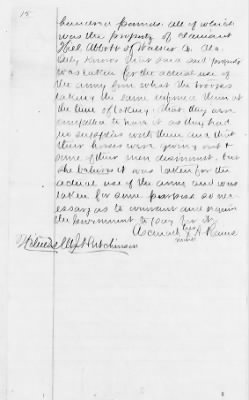 15
hundred pounds. all of which
was the property of claimant
Abbott of
was taken for the actual use of
the army from what the
taking the same informed them at
the time of taking, that they were
compelled to have it as they had
no supplies with them and that
their horses were giving out &
some of their men dismount. but
she believes it was taken for the
actual use of the army and was
taken for some purpose so ne-
cessary as to warrant and require
the Government to pay for it.
her
mark
Hutchinson